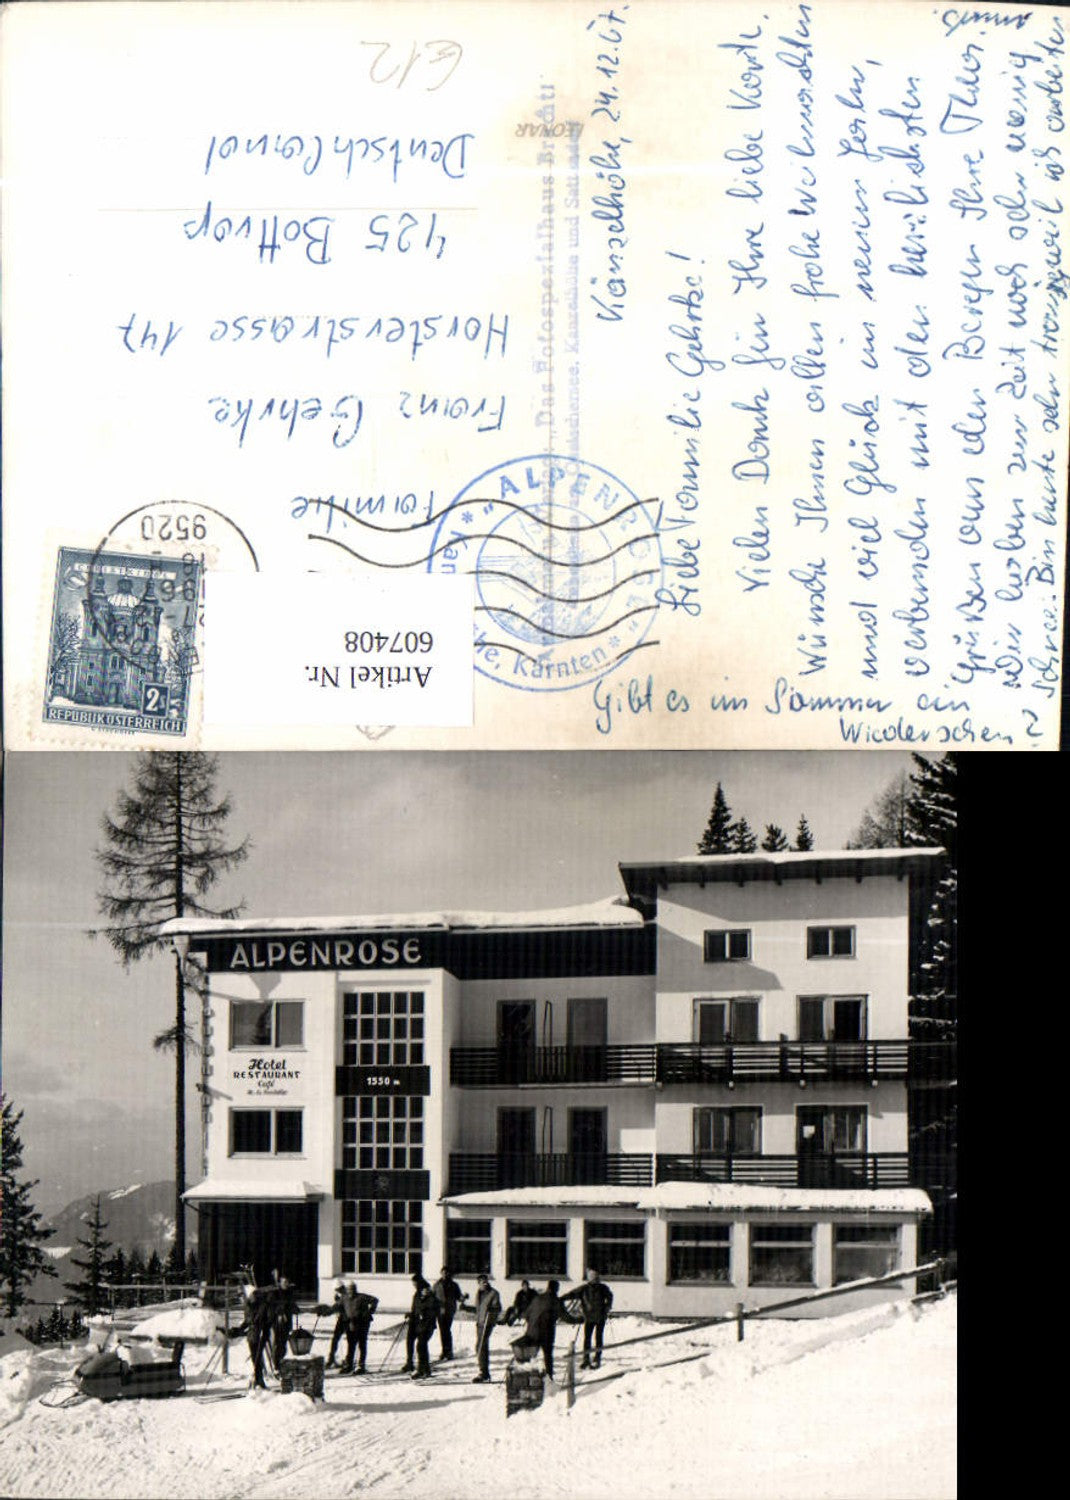 Kanzelhöhe, 24.12.67.
Liebe Familie Gehrke!
Vielen Dank für Ihre liebe Karte.
Wünsche Ihnen allen frohe Weihnachten
und viel Glück im neuen Jahr,
verbunden mit den herzlichsten
Grüßen aus den Bergen Ihre
Wir haben zur Zeit noch sehr wenig
Schnee. Bin heute sehr traurig weil ich arbeiten
muß.
Gibt es im Sommer ein
Wiedersehen?
Familie
Franz Gehrke
Horsterstrasse 147
425 Bottrop
Deutschland
€12
LEONAR
"Das Fotospezialhaus
Ossiachersee, Kanzelhöhe und
"ALPENROSE"
Kärnten
9520
CHRISTKINDL
2 S
REPUBLIK ÖSTERREICH
Artikel Nr.
607408
ALPENROSE
Hotel
RESTAURANT
Café
1550 m